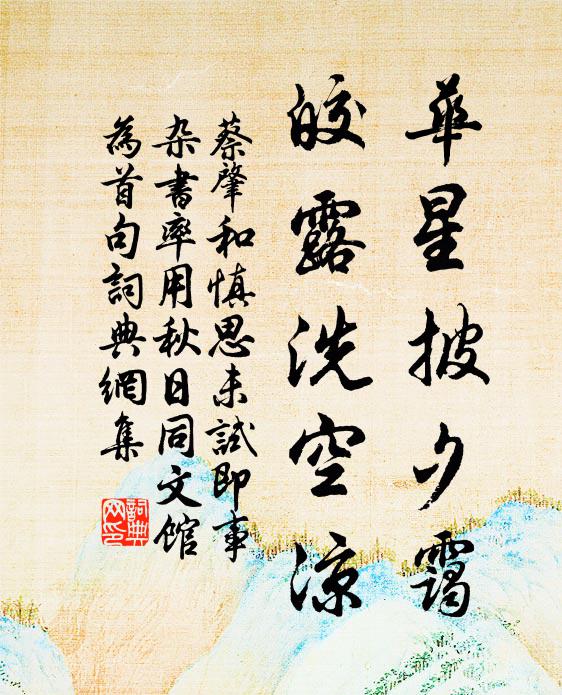 華星披夕靄
皎露洗空涼
蔡肇和慎思未試即事
杂書率用秋日同文馆
為首句詞典網集
詞典